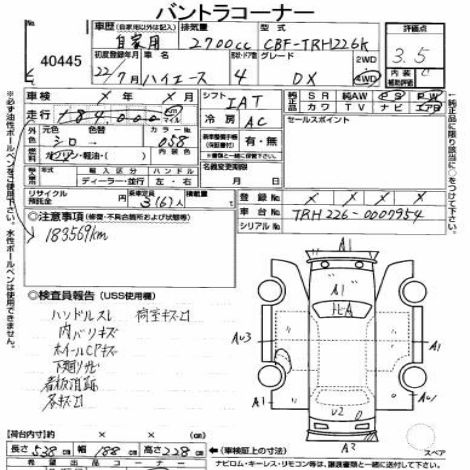 バントラコーナー
40445
車歴 (自家用以外は記入) 自家用
排気量 2700cc
型式 CBF-TRH226K
評価点 3.5
内装 C
初度登録年/月 22/7月
車名 ハイエース
ドア数 4
グレード DX
2WD
4WD
車検 × 年 × 月
シフト IAT
純正品 SR 純AW PS PW
カワ TV ナビ エアB
走行
冷房 AC
セールスポイント
外装色 元色 シロ 色替 カラーNo. 058
内装色
整備手帳 (保証書付) 有・無
燃料 ガソリン・軽油・( )
輸入区分 ディーラー・並行
ハンドル 左・右
名義変更期限 月 日
リサイクル預託金
乗車定員 3(6)人
積載量
登録No. × × ×
車台No. TRH226-0007954
シリアルNo.
◎注意事項 (修復・不具合箇所および状態等)
183569km
◎検査員報告 (USS使用欄)
ハンドルスレ 荷室キズ凹
内バリキズ
ホイールCPキズ
下廻りサビ
看板跡
各キズ凹
A1
A1
AU3
A1
A1
AU1
A1
U2
A2
スペア
【荷台内寸】約 × × cm
長さ 538 cm 幅 188 cm 高さ 228 cm
←(車検証上の寸法)
希望出品コーナー
ナビロム・キーレス・リモコン等は、譲渡書類と一緒に送付して下さい。
★必ず油性ボールペンをご使用下さい。水性ボールペンは使用できません。
↑純正品に限り該当に○をつけて下さい。